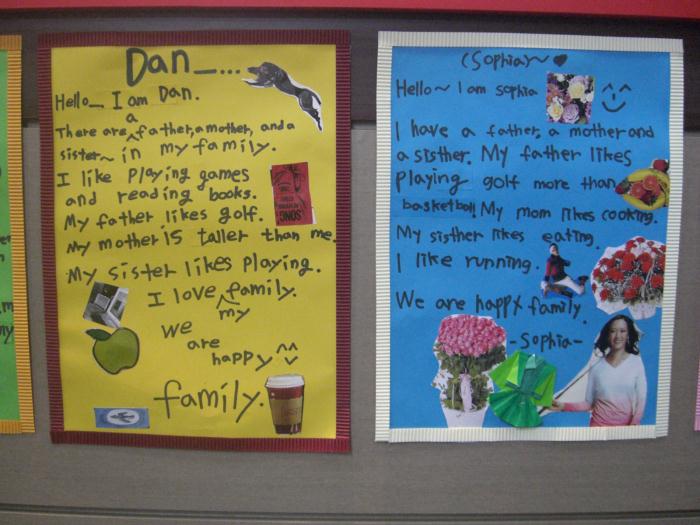 Dan_....
Hello_ I am Dan.
There are a father, a mother, and a
sister~ in my family.
I like playing games
and reading books.
My father likes golf.
My mother is taller than me.
My sister likes playing.
I love my family.
We
are
happy ^^
family.
(Sophia~ ♥
Hello~ I am sophia
I have a father, a mother and
a sisther. My father likes
playing golf more than
basketball. My mom likes cooking.
My sisther likes eating.
I like running.
We are happy family.
-Sophia-